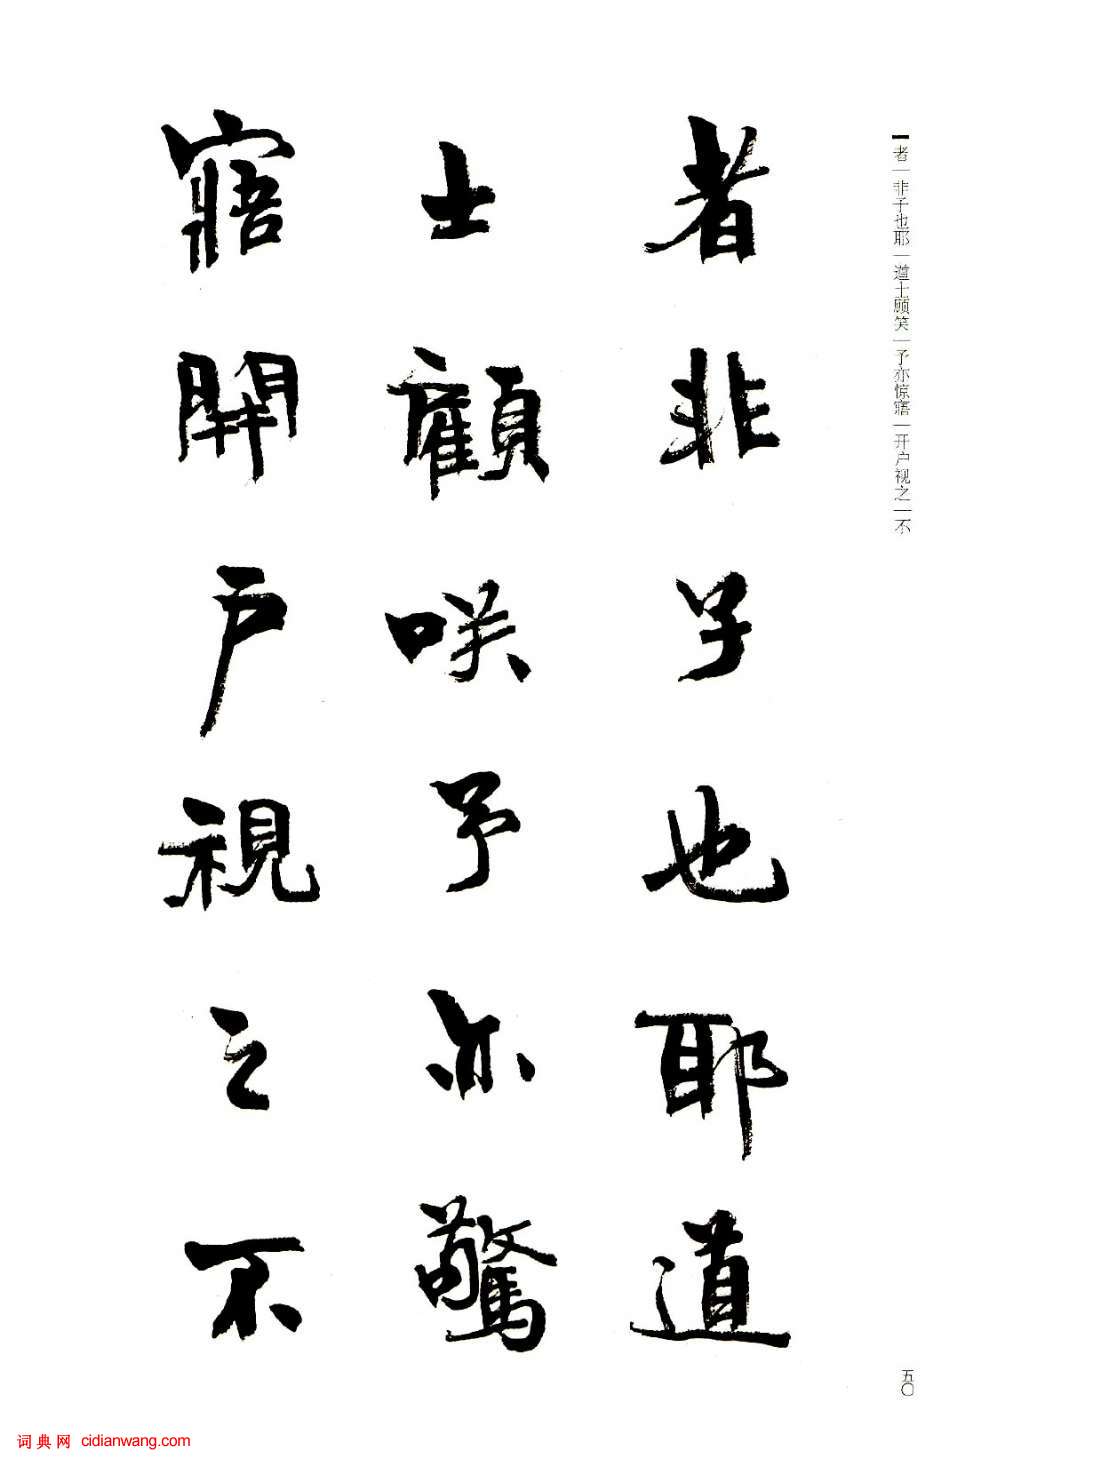 者非子也耶道
士顧咲予亦驚
寤開户視之不
者｜非子也耶｜道士顾笑｜予亦惊寤｜开户视之｜不
五〇
词典网 cidianwang.com